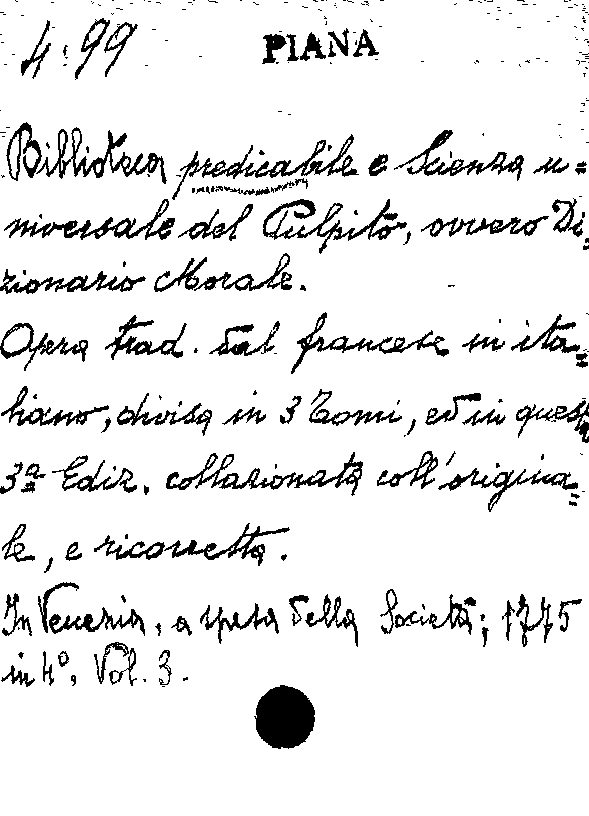 4.99 PIANA
Biblioteca predicabile e Scienza u=
niversale del Pulpito, ovvero Di=
zionario Morale.
Opera trad. dal francese in ita=
liano, divisa in 3 Tomi, ed in questa
3ª Ediz. collazionata coll'origina=
le, e ricorretta.
In Venezia, a spesa della Società; 1775
in 4°. Vol. 3.